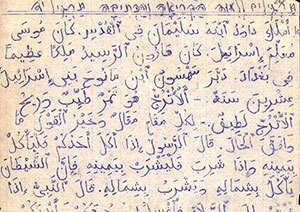 הקריאה והכתיבה
دَاوُدُ ابْنُهُ سُلَيْمَانُ فِي القُدْسِ كَانَ مُوسَى
مُعَلِّمَ إِسْرَائِيلَ كَانَ هَارُونُ الرَّشِيدُ مَلِكًا عَظِيمًا
فِي بَغْدَادَ. دَبَّرَ شَمْسُونُ ابْنُ مَانُوحَ بَنِي إِسْرَائِيلَ
عِشْرِينَ سَنَةً - الأُتْرُجُّ هُوَ ثَمَرٌ طَيِّبٌ وَرِيحُ
الأُتْرُجِّ لَطِيفٌ. لِكُلِّ مَقَامٍ مَقَالٌ وَخَيْرُ القَوْلِ مَا
وَافَقَ الحَالَ. قَالَ الرَّسُولُ إِذَا أَكَلَ أَحَدُكُمْ فَلْيَأْكُلْ
بِيَمِينِهِ وَإِذَا شَرِبَ فَلْيَشْرَبْ بِيَمِينِهِ فَإِنَّ الشَّيْطَانَ
يَأْكُلُ بِشِمَالِهِ وَيَشْرَبُ بِشِمَالِهِ. قَالَ النَّبِيُّ إِذَا